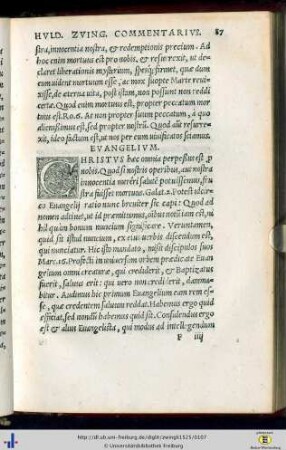 HVLD. ZVING. COMMENTARIVS. 87
stra, innocentia nostra, & redemptionis precium. Ad
hoc enim mortuus est pro nobis, & resurrexit, ut de
claret liberationis mysterium, spesq; firmet, quæ dum
eum uidet mortuum esse, ac mox suopte Marte reui-
xisse, de æterna uita, post istam, non possunt non reddi
certæ. Quod enim mortuus est, propter peccatum mor
tuus est Ro. 6. At non propter suum peccatum, à quo
alienissimus est, sed propter nostrū. Quod aūt resurre-
xit, ideo factum est, ut nos per eum uiuificatos sciamus.
EVANGELIVM.
CHRISTVS hæc omnia perpessus est p
nobis. Quod si nostris operibus, aut nostra
innocentia mereri salutē potuissemus, fru
stra fuisset mortuus. Galat. 2. Potest ideo
eo Euangelij ratio nunc breuiter sic capi: Quod ad
nomen adtinet, ut id præmittamus, oībus notū iam est, ni
hil quàm bonum nuncium significare. Veruntamen,
quid sit istud nuncium, ex eius uerbis discendum est,
qui nunciatur. Hic ista mandato, misit discipulos suos
Marc. 16. Profecti in uniuersum orbem prædicate Euan
gelium omni creaturæ, qui crediderit, & Baptizatus
fuerit, saluus erit: qui uero non credi erit, damna-
bitur. Audimus hic primum Euangelium eam rem es-
se, quæ credentem saluum reddat. Habemus ergo quid
efficiat, sed nondū habemus quid sit. Consulendus ergo
est & alius Euangelista, qui modus ad intelligendum
F iiij
http://dl.ub.uni-freiburg.de/diglit/zwingli1525/0107
© Universitätsbibliothek Freiburg